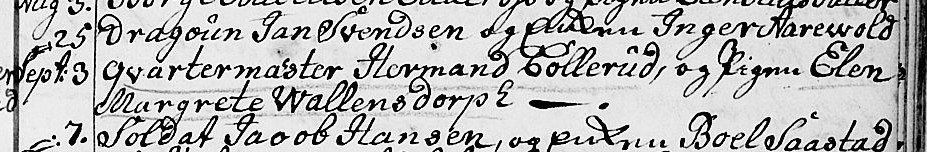 25 Dragoun Jan Svendsen og piken Inger Harewold
Sept: 3 Qvartermaster Hermand Tollerud, og Pigen Elen
Margrete Wallensdorph
7. Soldat Jacob Hansen, og piken Boel Saastad.